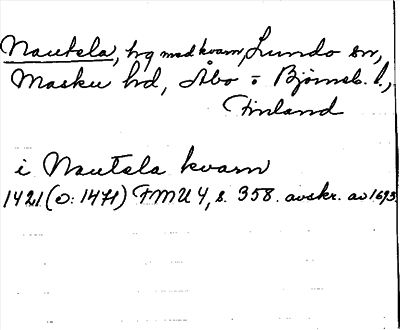 Nautela, hg med kvarn, Lundo sn,
Masku hd, Åbo o Björneb. l.,
Finland
i Nautela kvarn
1421 (o: 1471) FMU 4, s. 358. avskr. av 1693.